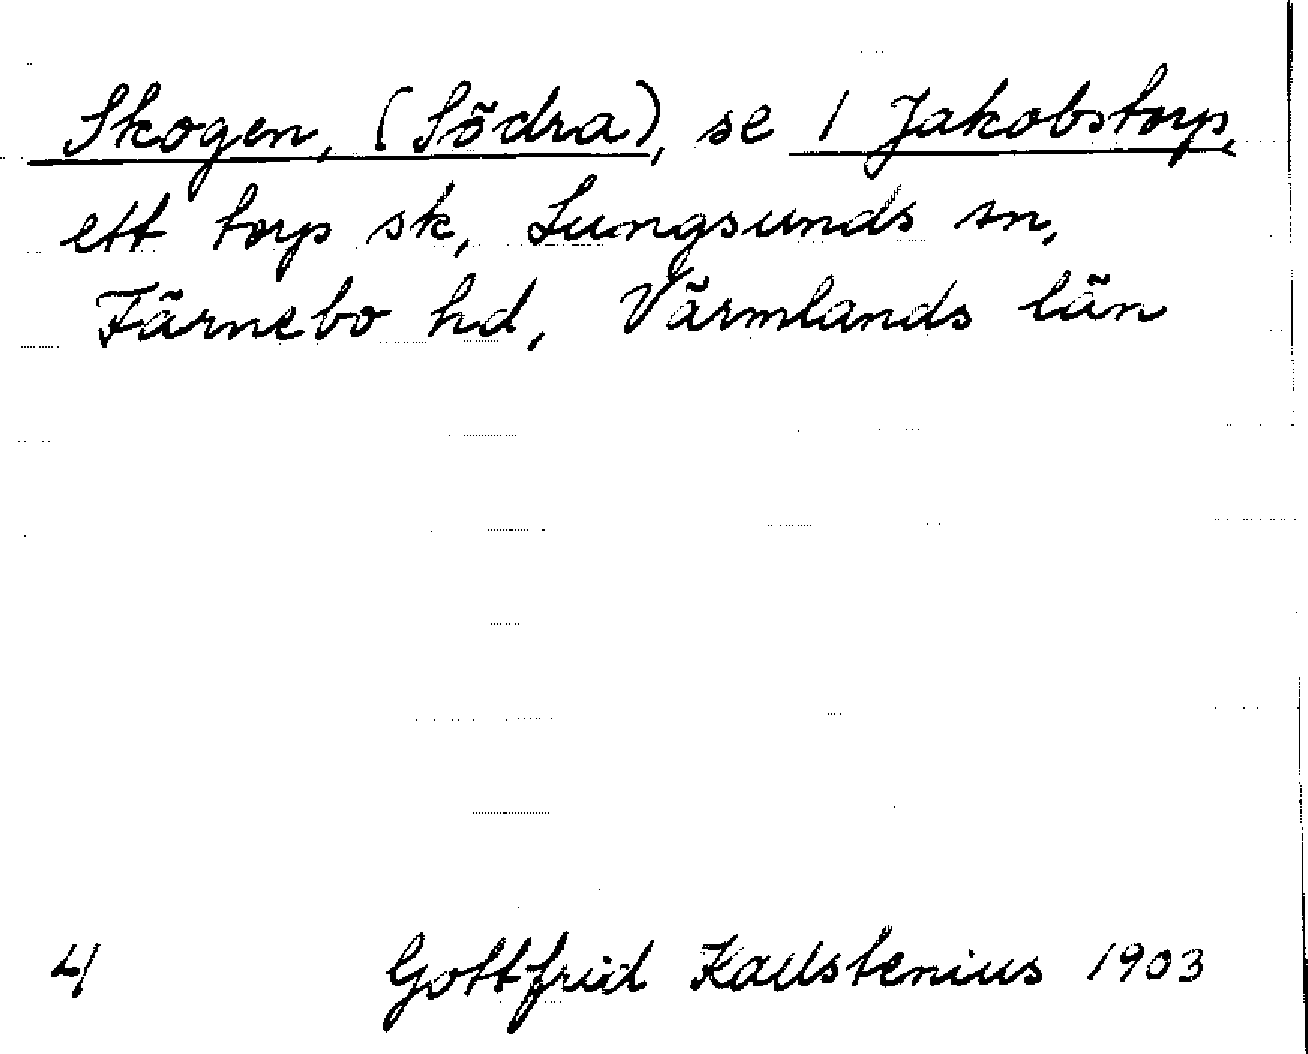 Skogen, (Södra), se 1 Jakobstorp,
ett torp sk, Lungsunds sn,
Färnebo hd, Värmlands län
4 Gottfrid Kallstenius 1903